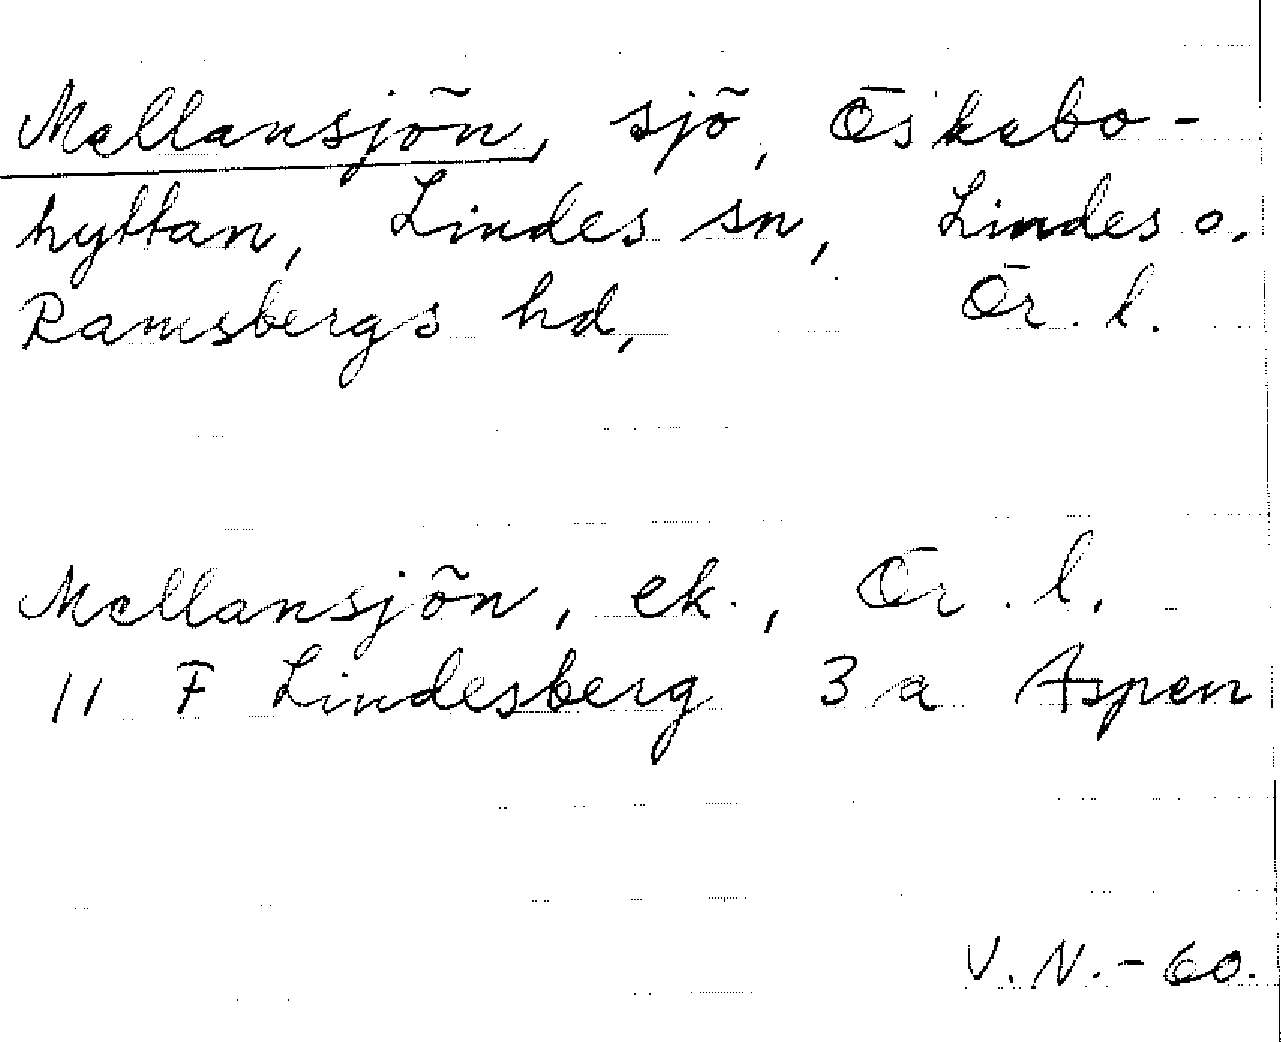 Mellansjön, sjö, Öskebo-
hyttan, Lindes sn, Lindes o.
Ramsbergs hd, Ör. l.
Mellansjön, ek., Ör. l.
11 F Lindesberg 3 a Aspen
V. N. - 60.